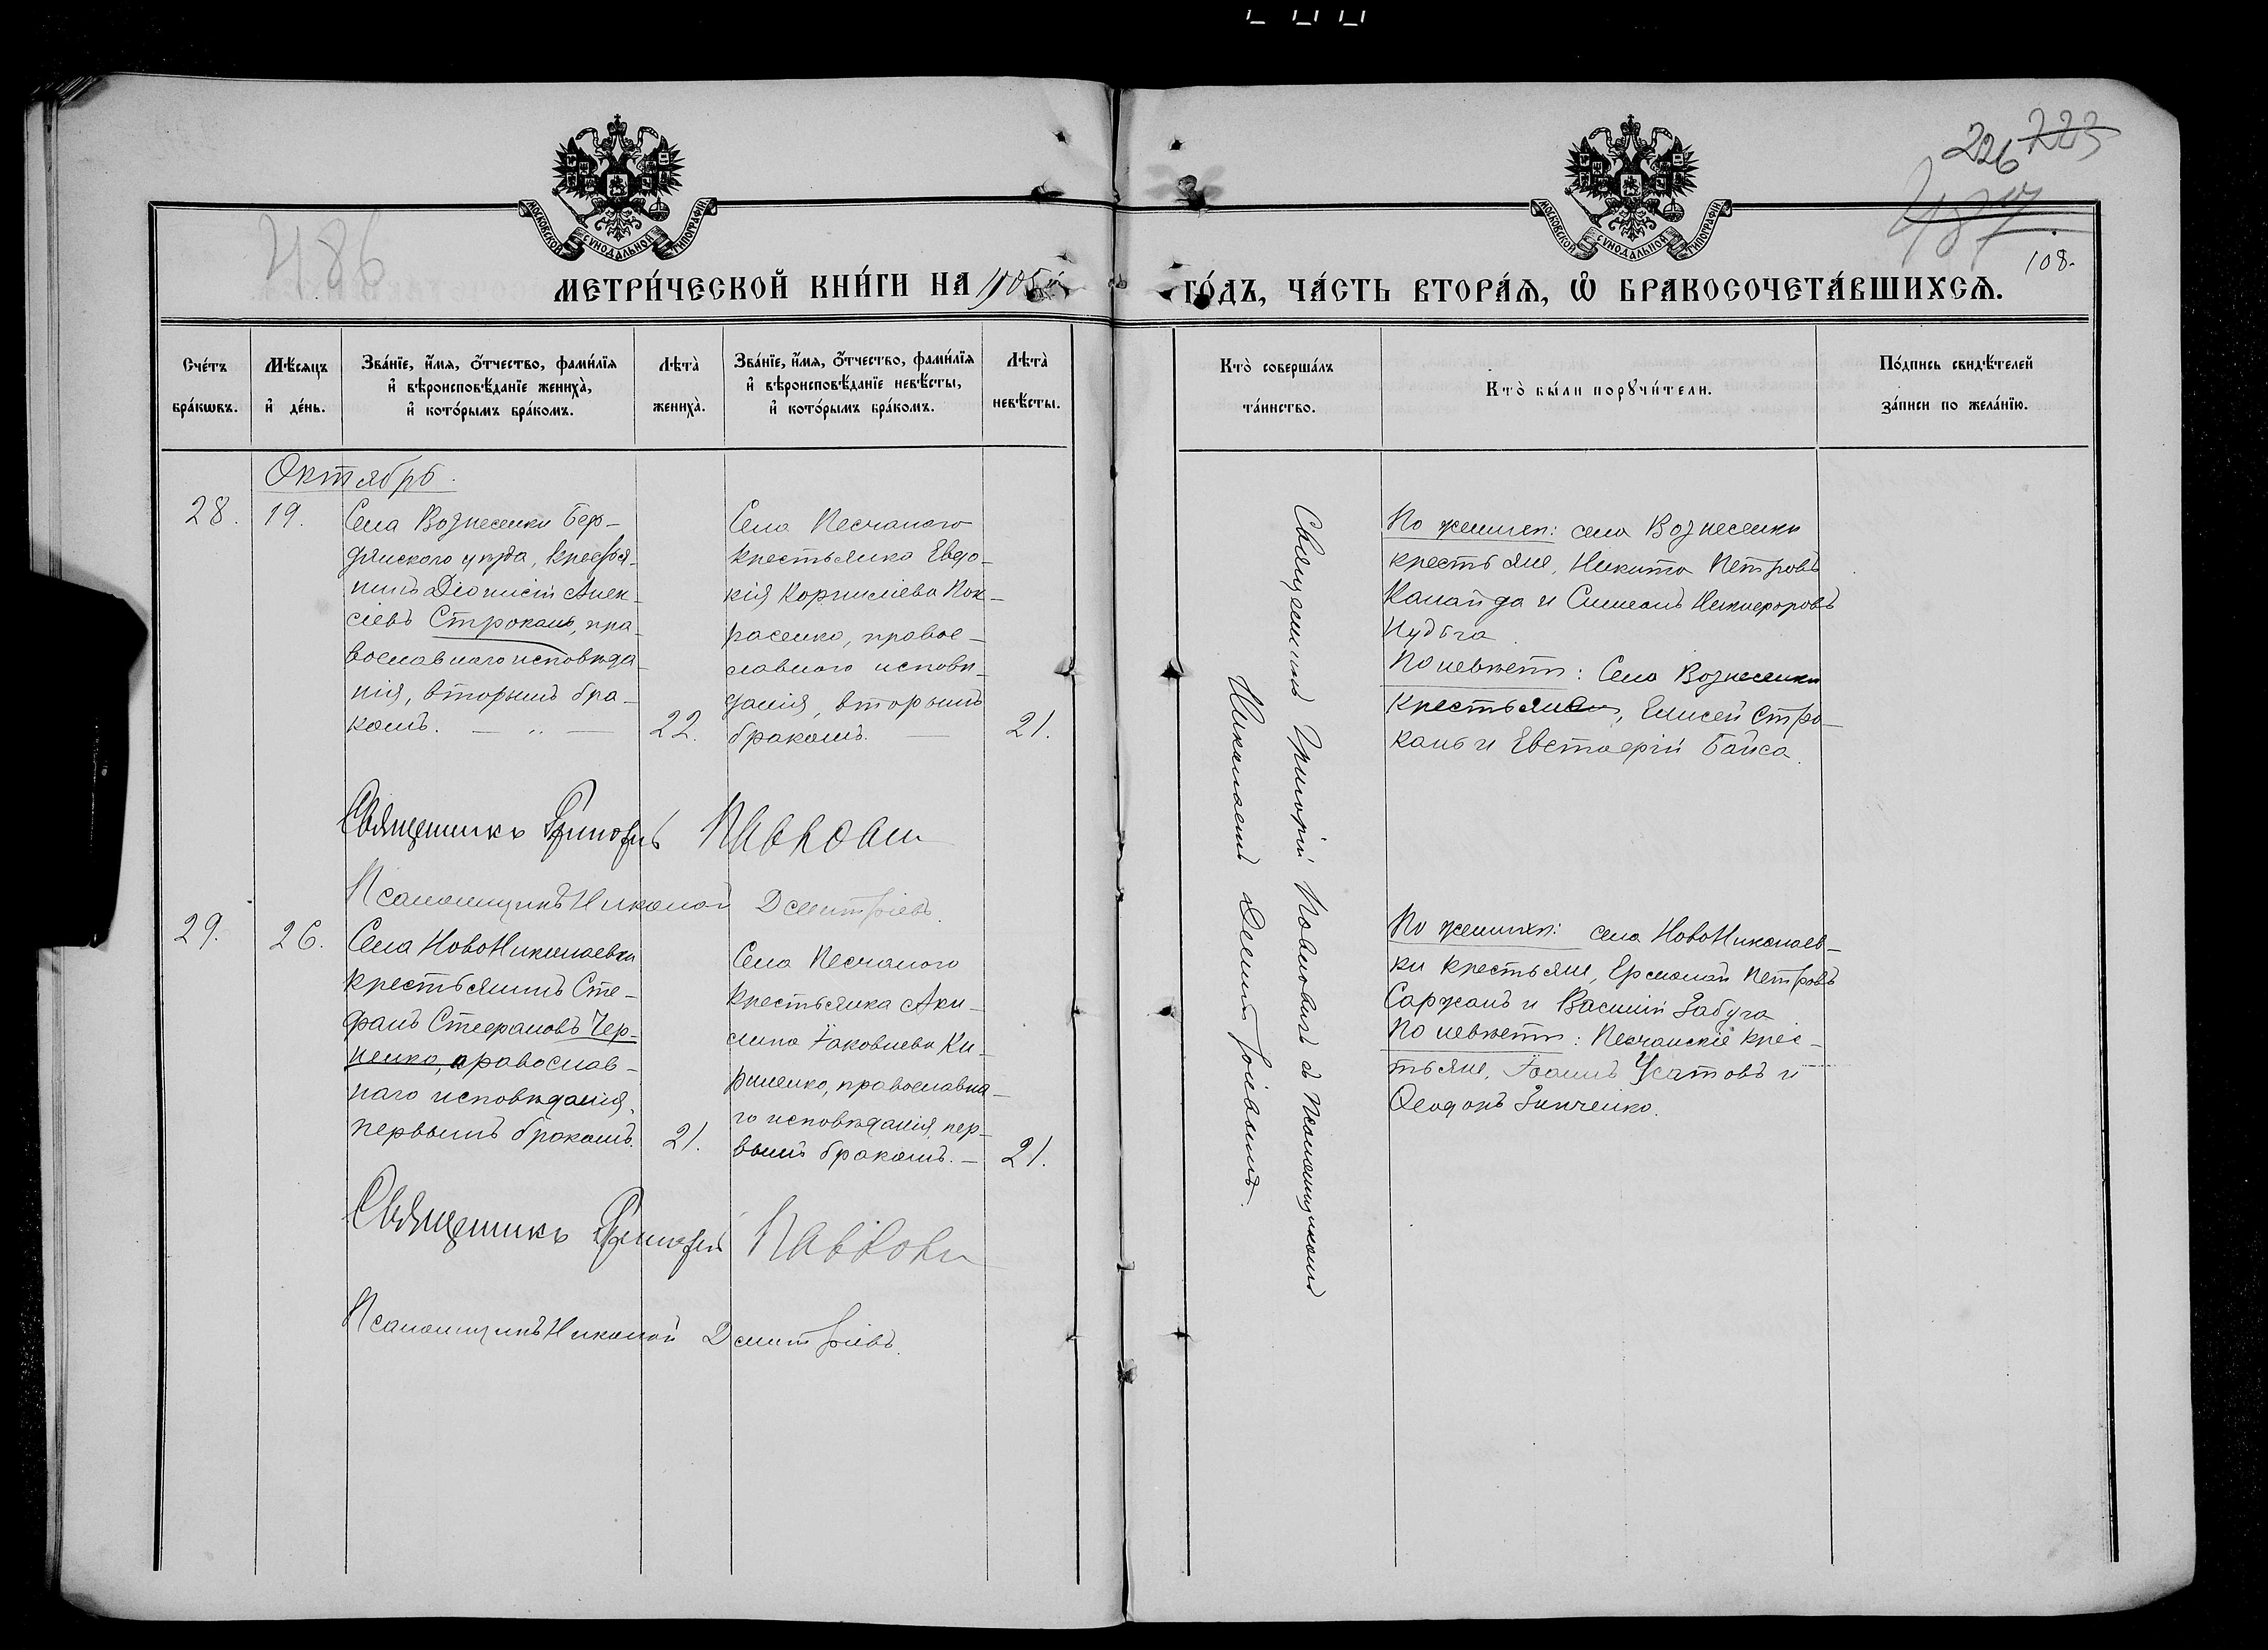 486
226 223
487
108.
МОСКОВСКОЙ СѴНОДАЛЬНОЙ ТИПОГРАФІИ
МОСКОВСКОЙ СѴНОДАЛЬНОЙ ТИПОГРАФІИ
МЕТРИ́ЧЕСКОЙ КНИ́ГИ НА
ГО́ДЪ, ЧА́СТЬ ВТОРА́Ѧ, Ѡ҆ БРАКОСОЧЕТА́ВШИХСѦ.
Сче́тъ бра́кѡвъ.
Мѣ́сяцъ и҆ де́нь.
Зва́нїе, и҆́мя, ѻ҆́тчество, фами́лїя
и҆ вѣроисповѣ́данїе жениха̀,
и҆ кото́рымъ бра́комъ.
Лѣта̀ жениха̀.
Зва́нїе, и҆́мя, ѻ҆́тчество, фами́лїя
и҆ вѣроисповѣ́данїе невѣ́сты,
и҆ кото́рымъ бра́комъ.
Лѣта̀ невѣ́сты.
Кто̀ соверша́лъ та́инство.
Кто̀ бы́ли порꙋчи́тели.
По́дпись свидѣ́телей за́писи по жела́нїю.
Октябрь.
28.
19.
Села Вознесенки Бер-
дянскаго уѣзда, крестья-
нинъ Діонисій Алек-
сіевъ Строканъ, пра-
вославнаго исповѣда-
нія, вторымъ бра-
комъ. — „ —
22.
Села Песчанаго
крестьянка Евдо-
кія Корниліева
православ-
славного исповѣ-
данія, вторымъ
бракомъ. —
21.
Священникъ Григорій Павловичъ съ Псаломщикомъ
Николаемъ Димитріевымъ.
По женихѣ: села Вознесенки
крестьяне, Никита Петровъ
Каланда и Симеонъ Никифоровъ
По невѣстѣ: Села Вознесенки
крестьяне, Елисей Стро-
кань и Евстафій Байса.
Священникъ Григорій Павлович
Псаломщикъ Николай Димитріевъ.
29.
26.
Села НовоНиколаевки
крестьянинъ Сте-
фанъ Стефановъ Чер-
ненко, православ-
наго исповѣданія,
первымъ бракомъ.
21.
Села Песчаного
крестьянка Аки-
лина Іаковлева Ки-
риленко, православна-
го исповѣданія, пер-
вымъ бракомъ. —
21.
По женихѣ: села НовоНиколаев-
ки крестьяне, Ермолай Петровъ
Саржанъ и Василій Забуга
По невѣстѣ: Песчанскіе крес-
тьяне, Іоаннъ Усатовъ и
Ѳеодоръ Зинченко.
Священникъ Григорій Павлович
Псаломщикъ Николай Димитріевъ.